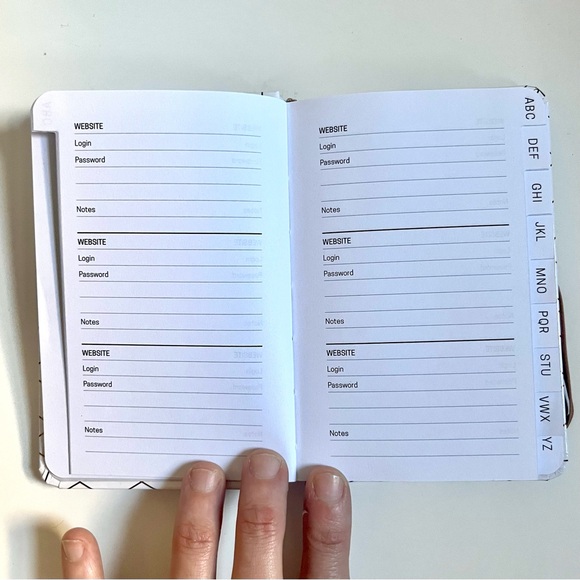 WEBSITE
Login
Password
Notes
WEBSITE
Login
Password
Notes
WEBSITE
Login
Password
Notes
WEBSITE
Login
Password
Notes
WEBSITE
Login
Password
Notes
WEBSITE
Login
Password
Notes
ABC
DEF
GHI
JKL
MNO
PQR
STU
VWX
YZ